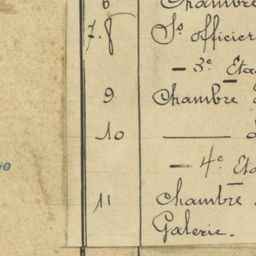 6 Chambre
7.8 Ss officier
- 3e Eta
9 Chambre
10
- 4e Eta
11 Chambre
Galerie.